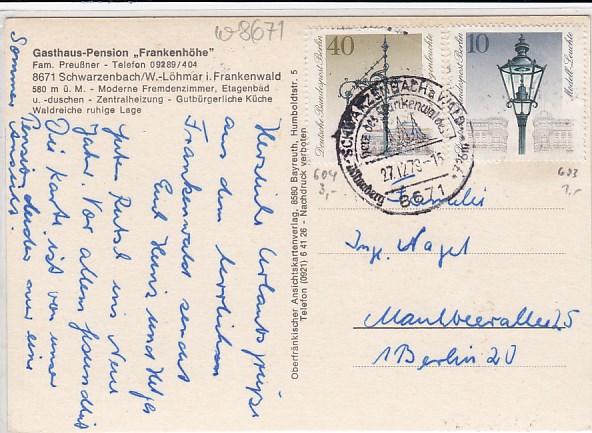 w8671
Gasthaus-Pension „Frankenhöhe"
Fam. Preußner - Telefon 09289/404
8671 Schwarzenbach/W.-Löhmar i. Frankenwald
580 m ü. M. - Moderne Fremdenzimmer, Etagenbad
u. -duschen - Zentralheizung - Gutbürgerliche Küche
Waldreiche ruhige Lage
Herzliche Urlaubsgrüße
aus dem herrlichen
Frankenwald sendet
Euch Heinz und
Guten Rutsch ins Neue
Jahr. Vor allem Gesundheit
Die Karte ist von unser
Pension leider nur eine
Sommer
Ansicht.
Oberfränkischer Ansichtskartenverlag, 8580 Bayreuth, Humboldtstr. 5
Telefon (0921) 6 41 26 - Nachdruck verboten
40
Deutsche Bundespost Berlin
10
Deutsche Bundespost Berlin
Modell-Leuchte
SCHWARZENBACH a WALD
27.12.79-15
8671
604
3,-
603
1,-
Familie
Ing. Nagel
Maulbeerallee 25
1 Berlin 20